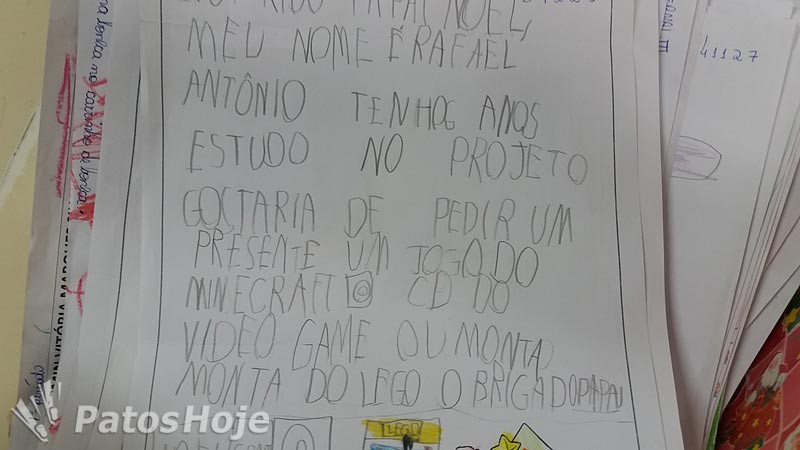 PAPAI NOEL,
MEU NOME É RAFAEL
ANTÔNIO TENHO6 ANOS
ESTUDO NO PROJETO
GOÇTARIA DE PEDIR UM
PRESENTE UM JOGO DO
MINECRAFT CD DO
VIDEO GAME OU MONTA
MONTA DO LEGO OBRIGADO PAPAI
LEGO
41127
PatosHoje